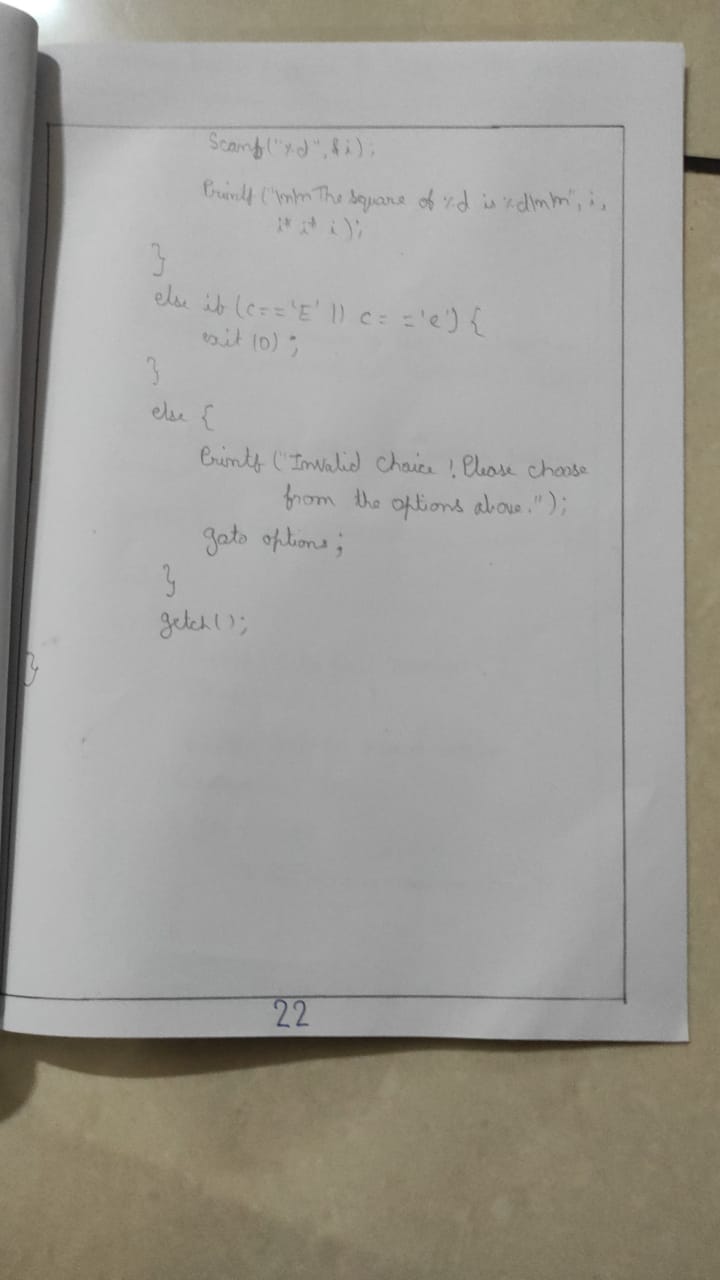 Scanf("%d", &i);
Printf ("\n\n The square of %d is %d\n\n", i,
i* i* i);
}
else if (c=='E' || c= ='e') {
exit (0) ;
}
else {
Printf ("Invalid Choice ! Please choose
from the options above.");
goto options;
}
getch();
}
22